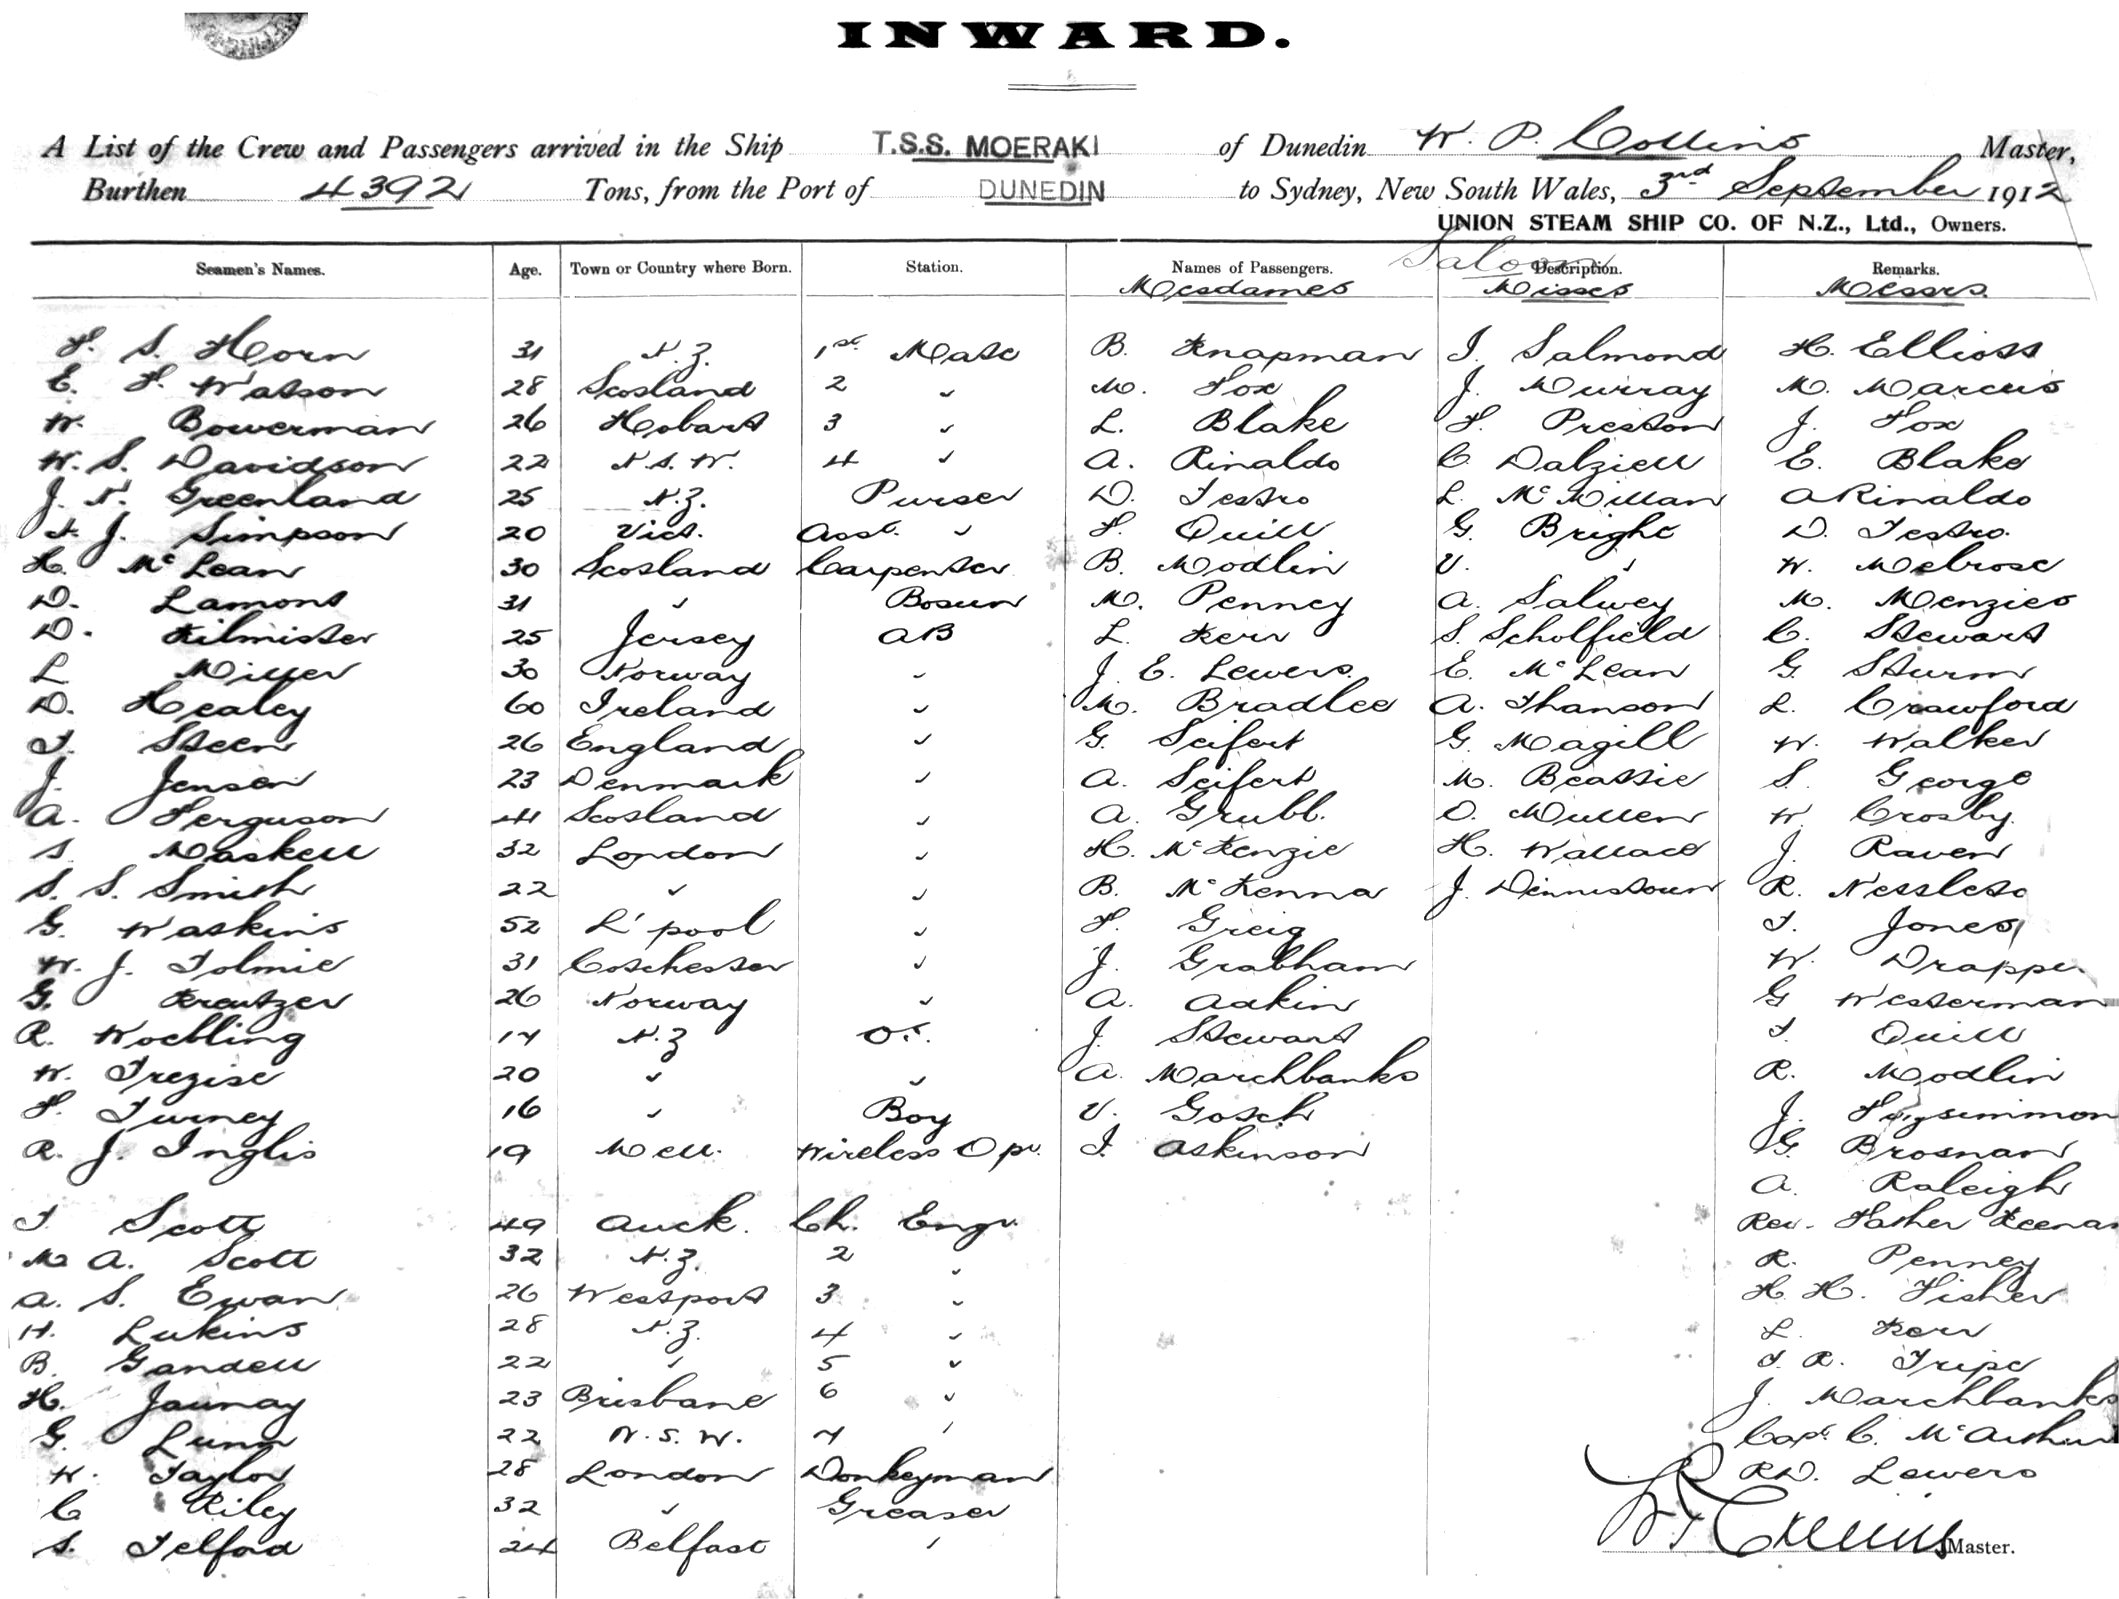 INWARD.
A List of the Crew and Passengers arrived in the Ship T.S.S. MOERAKI of Dunedin W. P. Collins Master,
Burthen 4392 Tons, from the Port of DUNEDIN to Sydney, New South Wales, 3rd September 1912
UNION STEAM SHIP CO. OF N.Z., Ltd., Owners.
Saloon
Seamen's Names. Age. Town or Country where Born. Station. Names of Passengers. Description. Remarks.
Mesdames Misses Messrs.
F. S. Horn 31 N.Z. 1st Mate B. Knapman I. Salmond H. Elliott
E. F. Watson 28 Scotland 2 " M. Fox J. Murray M. Marcus
W. Bowerman 26 Hobart 3 " L. Blake F. Preston J. Fox
W. S. Davidson 22 N.S.W. 4 " A. Rinaldo C. Dalziell E. Blake
J. N. Greenland 25 N.Z. Purser D. Testro L. McMillan A Rinaldo
F. J. Simpson 20 Vict. Asst. " F. Quill G. Bright D. Testro.
H. McLean 30 Scotland Carpenter B. Modlin V. " W. Melrose
D. Lamont 31 " Bosun M. Penney A. Salwey M. Menzies
D. Kilmister 25 Jersey AB L. Kerr S. Scholfield C. Stewart
L Miller 30 Norway " J. E. Lewers. E. McLean G. Sturm
D. Healey 60 Ireland " M. Bradlee A. Thanson L. Crawford
T. Steen 26 England " G. Seifert G. Magill W. Walker
J. Jensen 23 Denmark " A. Seifert M. Beattie S. George
A. Ferguson 41 Scotland " A. Grubb. O. Mullen W. Crosby.
S. Maskell 32 London " H. McKenzie H. Wallace J. Raven
S. S. Smith 22 " " B. McKenna J. Dennistoun R. Nesslete
G. Watkins 52 L'pool " F. Greig T. Jones
W. J. Tolmie 31 Colchester " J. Grabham W. Drappe.
G. Kreutzer 26 Norway " A. Adkin G Westerman
R. Woebling 17 N.Z O.S. J. Stewart T. Quill
W. Trezise 20 " " A. Marchbanks R. Modlin
F. Turney 16 " Boy V. Gosch J.
R. J. Inglis 19 Mell. Wireless Opr. I. Atkinson G. Brosnan
A. Raleigh
T Scott 49 Auck. Ch. Engr. Rev. Father Keenan
M A. Scott 32 N.Z. 2 " R. Penney
A. S. Ewan 26 Westport 3 " H H. Fisher
H. Lukins 28 N.Z. 4 " L. Kerr
B. Gandell 22 " 5 " T. R. Tripe
H. Jaunay 23 Brisbane 6 " J. Marchbanks
G. Lunn 22 N.S.W. 7 " Capt. C. McArthur
W. Taylor 28 London Donkeyman R.D. Lewers
C Riley 32 " Greaser
S. Telford 24 Belfast " W P Collins Master.